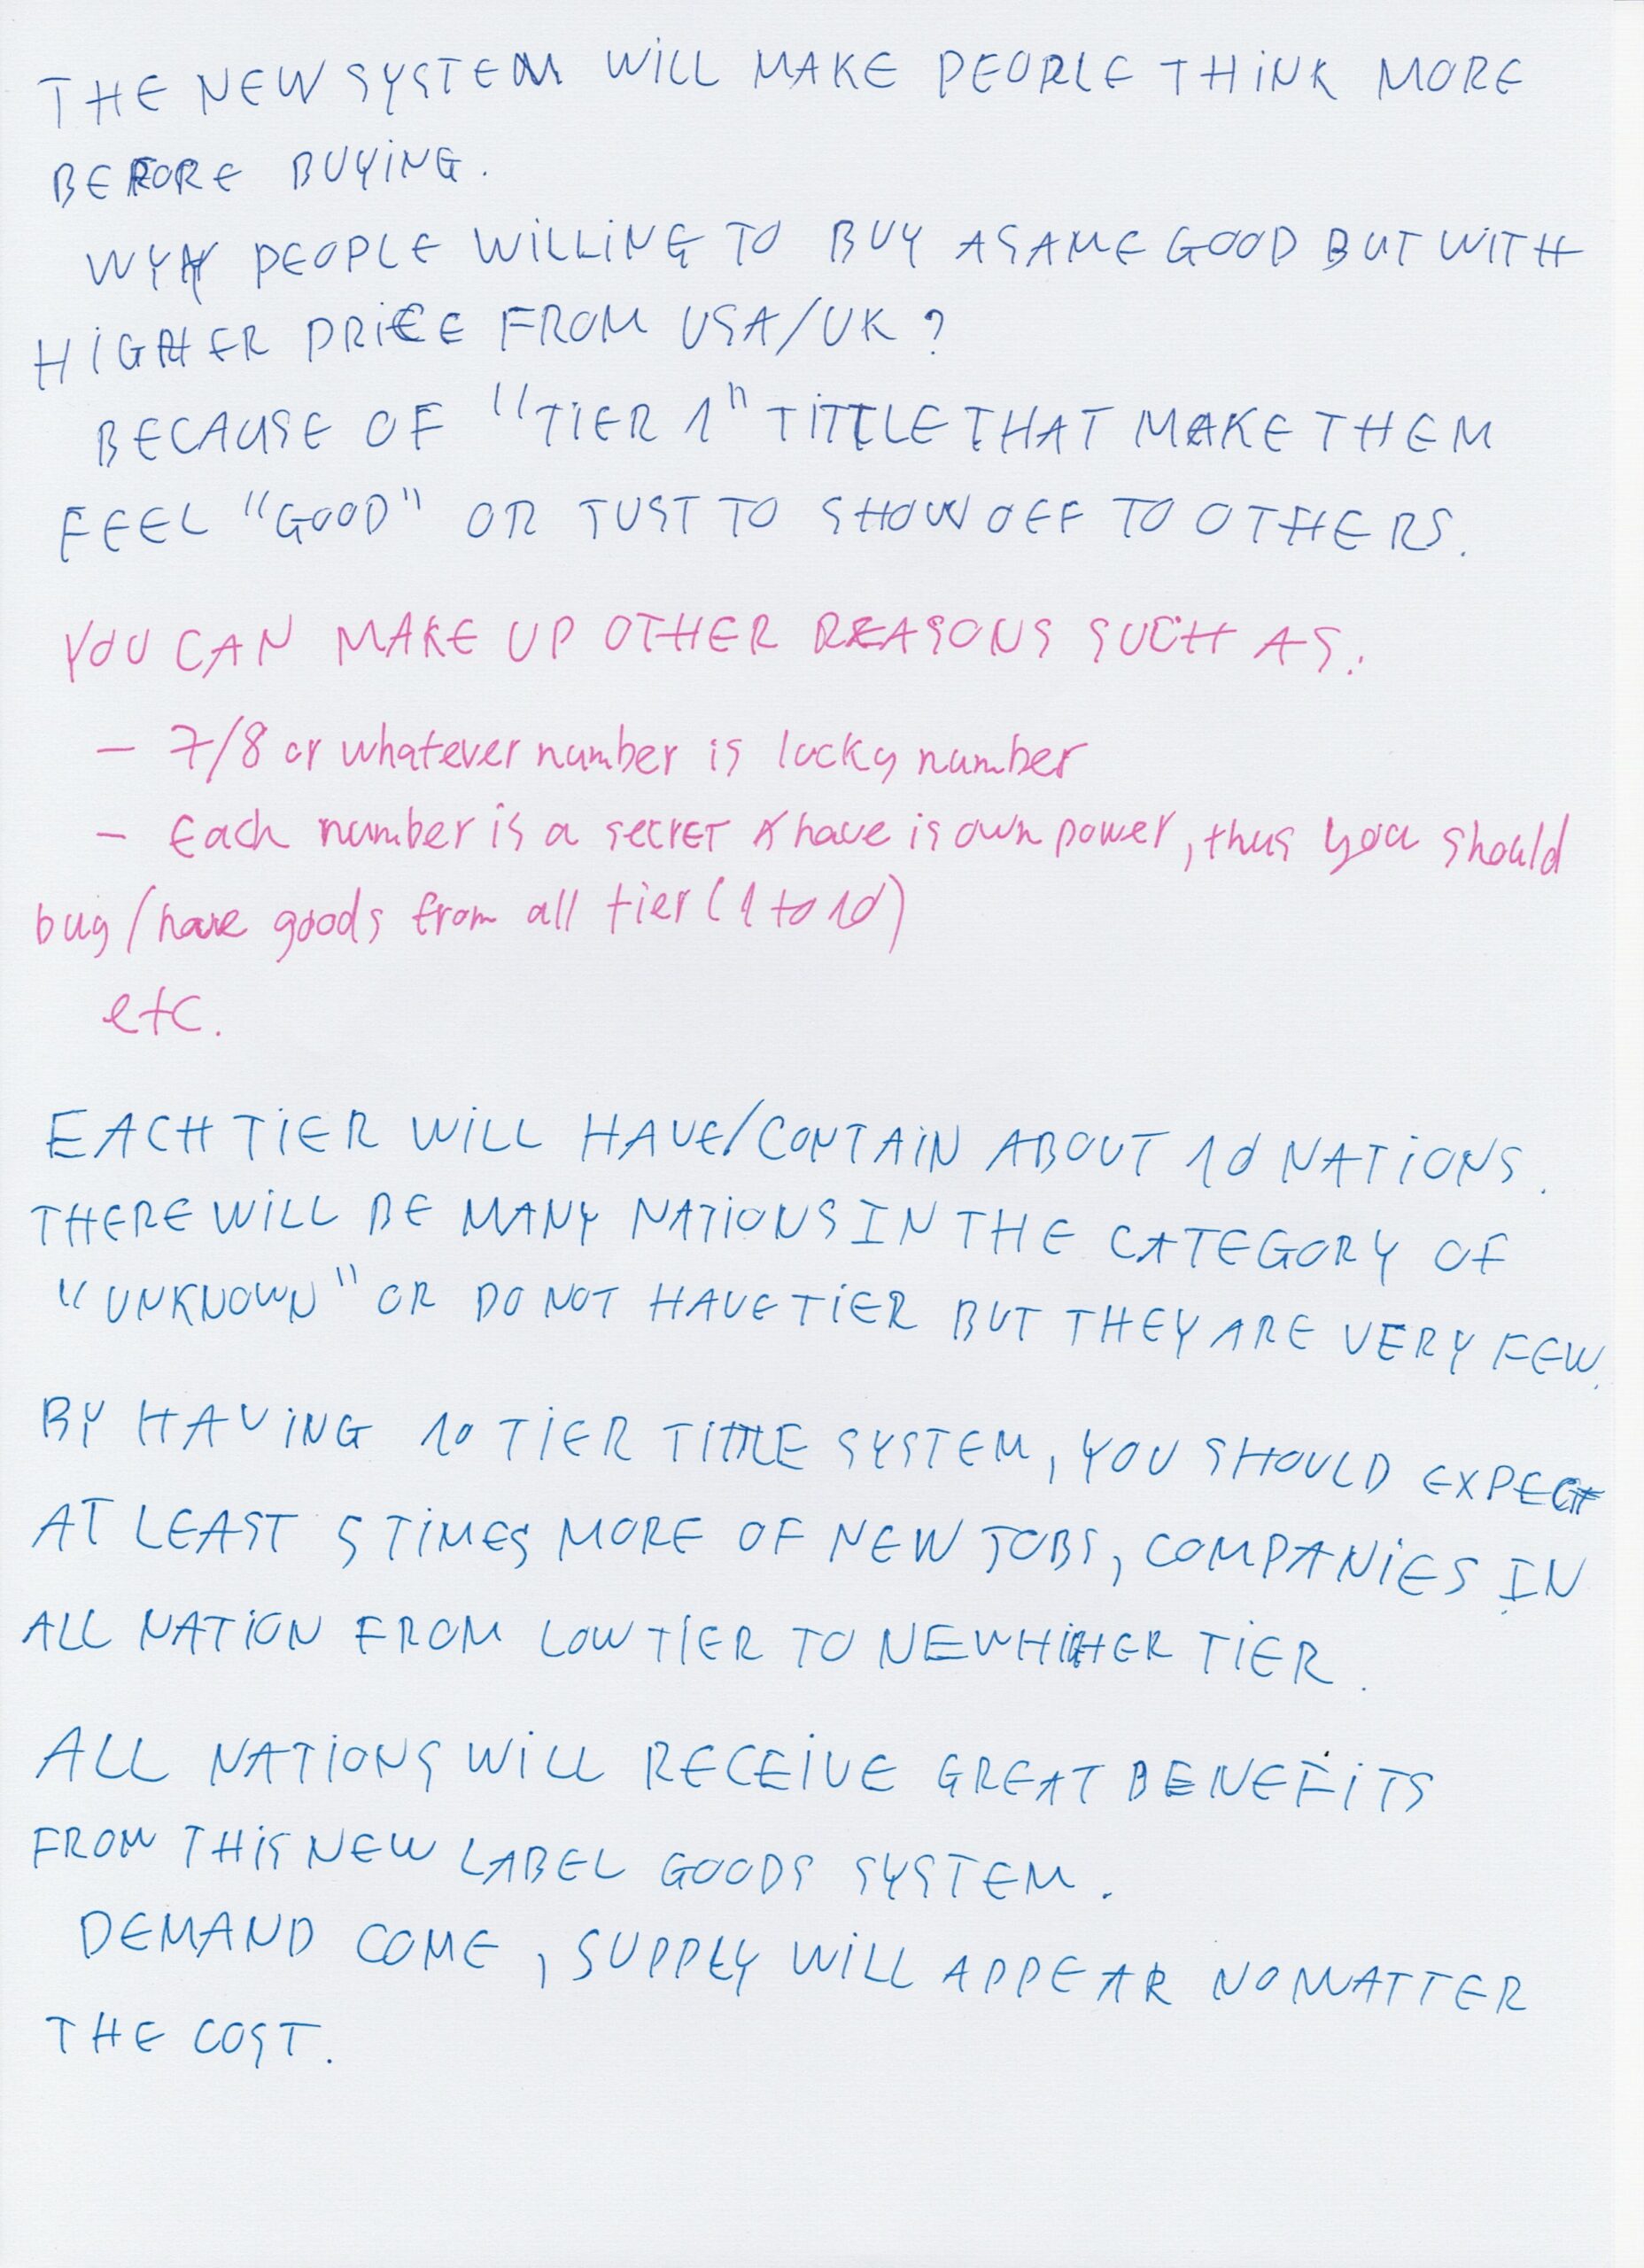 THE NEW SYSTEM WiLL MAKE PEOPLE THiNK MORE
BEFORE BUYiNG.
WYH PEOPLE WiLLiNG TO BUY A SAME GOOD BUT WITH
HIGHER PRiCE FROM USA/UK ?
BECAUSE OF "TiER 1" TiTTLE THAT MAKE THEM
FEEL "GOOD" OR JUST TO SHOW OFF TO OTHERS.
YOU CAN MAKE UP OTHER REASONS SUCH AS:
- 7/8 or whatever number is lucky number
- Each number is a secret & have is own power, thus you should
buy/have goods from all tier (1 to 10)
etc.
EACH TiER WiLL HAVE/CONTAiN ABOUT 10 NATiONS.
THERE WiLL BE MANY NATiONS IN THE CATEGORY OF
"UNKNOWN" OR DO NOT HAVE TiER BUT THEY ARE VERY FEW.
BY HAViNG 10 TiER TiTTLE SYSTEM, YOU SHOULD EXPECT
AT LEAST 5 TiMES MORE OF NEW JOBS, COMPANiES IN
ALL NATiON FROM LOW TiER TO NEW HiGHER TiER.
ALL NATiONS WiLL RECEiVE GREAT BENEFiTS
FROM THiS NEW LABEL GOODS SYSTEM.
DEMAND COME, SUPPLY WiLL APPEAR NO MATTER
THE COST.